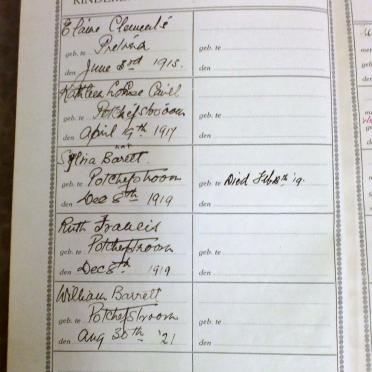 KINDEREN
Elaine Clements
geb. te Pretoria geb. te
den June 3rd 1915. den
Kathleen Louise
geb. te Potchefstroom geb. te
den April 9th 1917 den
Sylvia Barett.
geb. te Potchefstroom geb. te Died Feb 8th '19.
den Dec 8th 1919 den
Ruth Francis
geb. te Potchefstroom geb. te
den Dec 8th 1919 den
William Barrett
geb. te Potchefstroom geb. te
den Aug 30th '21 den